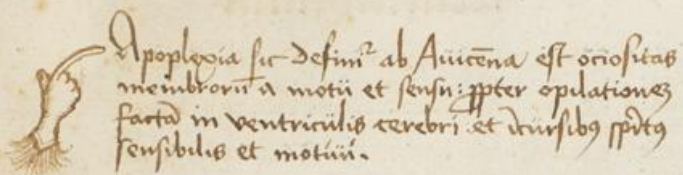 Apoplexia sic definit᷑ ab Auicēna est ociositas
membrorū a motu et sensu: ꝓpter opilationeꝫ
factā in ventriculis cerebri et ī cursibꝰ spūs
sensibilis et motiui.